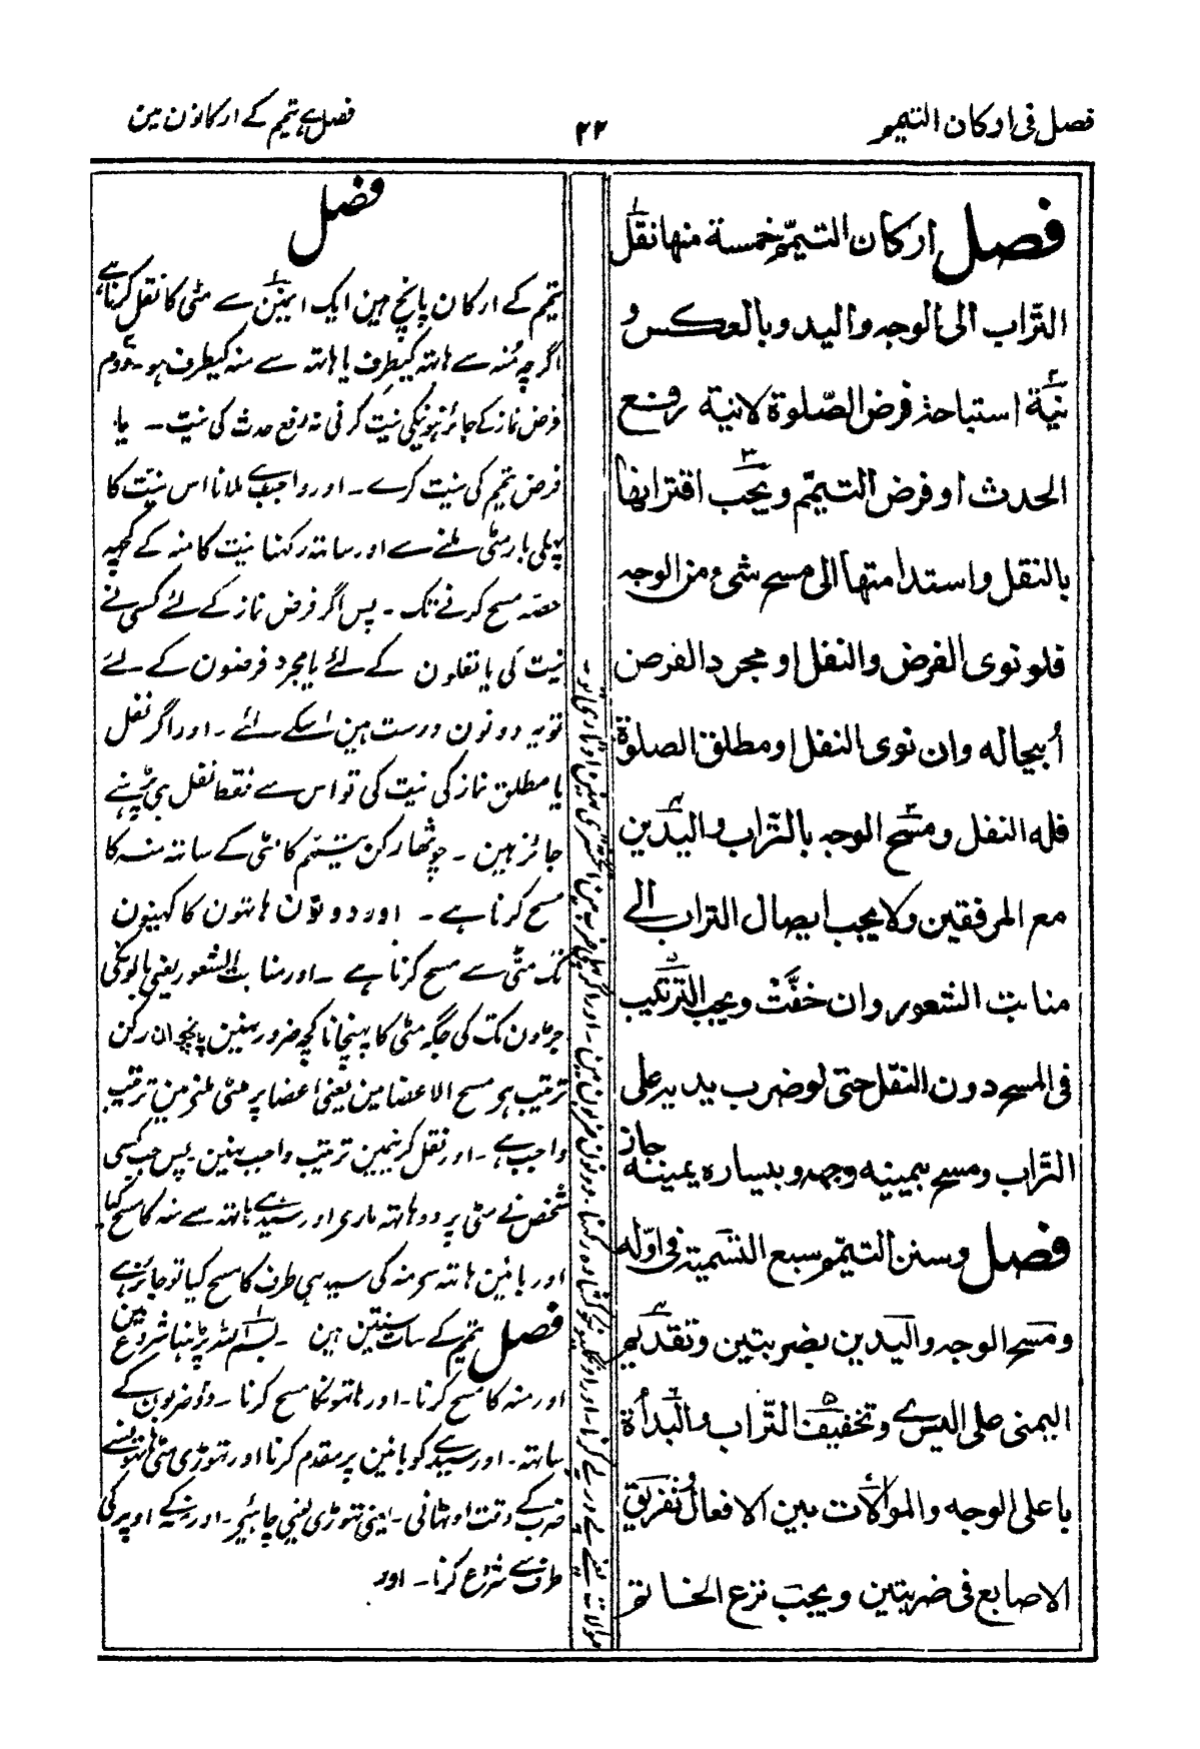 فصل فی ارکان التیمم
۲۲
فصل ہے تیمم کے ارکانون مین
فصل ارکان التیمّم خمسة منها نقل
التراب الی الوجه والید وبالعکس و
نیّة استباحة فرض الصّلوة لانیة رفع
الحدث اوفرض التیمّم ویجب اقترانها
بالنقل واستدامتها الی مسح شیء من الوجه
فلو نوی الفرض والنفل او مجرد الفرض
أبیحاله وان نوی النفل او مطلق الصلوة
فله النفل ومسح الوجه بالتّراب والیدین
مع المرفقین ولا یجب ایصال التراب الے
منابت الشعور وان خفّت ویجب الترتیب
فی المسح دون النقل حتی لو ضرب یدیه علی
التّراب ومسح بیمینه وجهه وبیساره یمینه جاز
فصل وسنن التیمّم سبع التسمیة فی اوّله
ومسح الوجه والیدین بضربتین وتقدیم
الیمنی علی الیسرے وتخفیف التّراب والبدأة
باعلی الوجه والموالات بین الافعال وتفریق
الاصابع فی ضربتین ویجب نزع الخاتم
فصل
تیمم کے ارکان پانچ ہین ایک انمین سے مٹی کا نقل کرنا ہے
اگرچہ مُنہ سے ہاتہ کیطرف یا ہاتہ سے منہ کیطرف ہو۔ دوم
فرض نماز کے جائز ہونیکی نیت کرنی نہ رفع حدث کی نیت۔ یا
فرض تیمم کی نیت کرے۔ اور واجب ہے ملانا اس نیت کا
پہلی بار مٹی ملنے سے اور ساتہ رکہنا نیت کا منہ کے کچہہ
حصّہ مسح کرنے تک۔ پس اگر فرض نماز کے لئے کسی نے
نیت کی یا نفلون کے لئے یا مجرد فرضون کے لئے
تو یہ دونون درست ہین اسکے لئے۔ اور اگر نفل
یا مطلق نماز کی نیت کی تو اس سے فقط نفل ہی پڑہنے
جائز ہین۔ چوتھا رکن تیمّم کا مٹی کے ساتہ منہ کا
مسح کرنا ہے۔ اور دونون ہاتون کا کہنیون
تک مٹی سے مسح کرنا ہے۔ اور منابت الشعور یعنی بالونکی
جڑون تک کی جگہ مٹی کا پہنچانا کچہ ضرور نہین پانچوان رکن
ترتیب ہر مسح الاعضا مین یعنی اعضا پر مٹی ملنے مین ترتیب
واجب ہے۔ اور نقل کرنیمین ترتیب واجب نہین۔ پس جب کسی
شخص نے مٹی پر دو ہاتہ ماری اور سیدہے ہاتہ سے منہ کا مسح کیا
اور بائین ہاتہ سے منہ کی سیدہی طرف کا مسح کیا تو جائز ہے
فصل تیمم کے سات سنتین ہین۔ بسم اللہ پڑہنا شروع مین
اور منہ کا مسح کرنا۔ اور ہاتونکا مسح کرنا۔ دو ضربون کے
ساتہ۔ اور سیدہے کو بائین پر مقدم کرنا اور تہوڑی مٹی ہاتونسے
ضرب کے وقت اوٹہانی۔ یعنی تہوڑی لینی چاہئیے۔ اور منہ کے اوپر کی
طرف سے شروع کرنا۔ اور